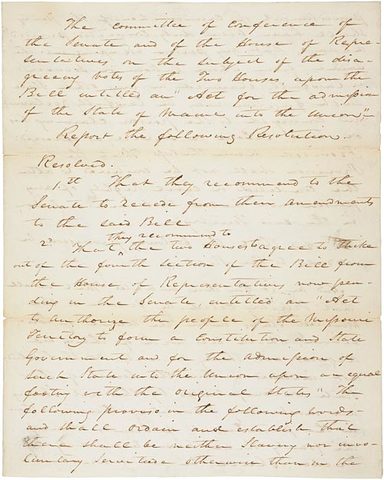 The committee of Conference of
the Senate and of the House of Repre-
sentatives on the subject of the disa-
greeing votes of the Two Houses, upon the
Bill entitled an "Act for the admission
of the State of Maine into the Union"
Report the following Resolution.
Resolved.
1st That they recommend to the
Senate to recede from their amendments
to the said Bill
they recommend to
2d That the two Houses agree to strike
out of the fourth section of the Bill from
the House of Representatives now pen-
ding in the Senate, entitled an "Act
to authorize the people of the Missouri
Territory to form a Constitution and State
Government and for the admission of
such State into the Union upon an equal
footing with the original States" The
following proviso in the following words-
and shall ordain and establish that
there shall be neither Slavery nor invo-
luntary Servitude otherwise than in the